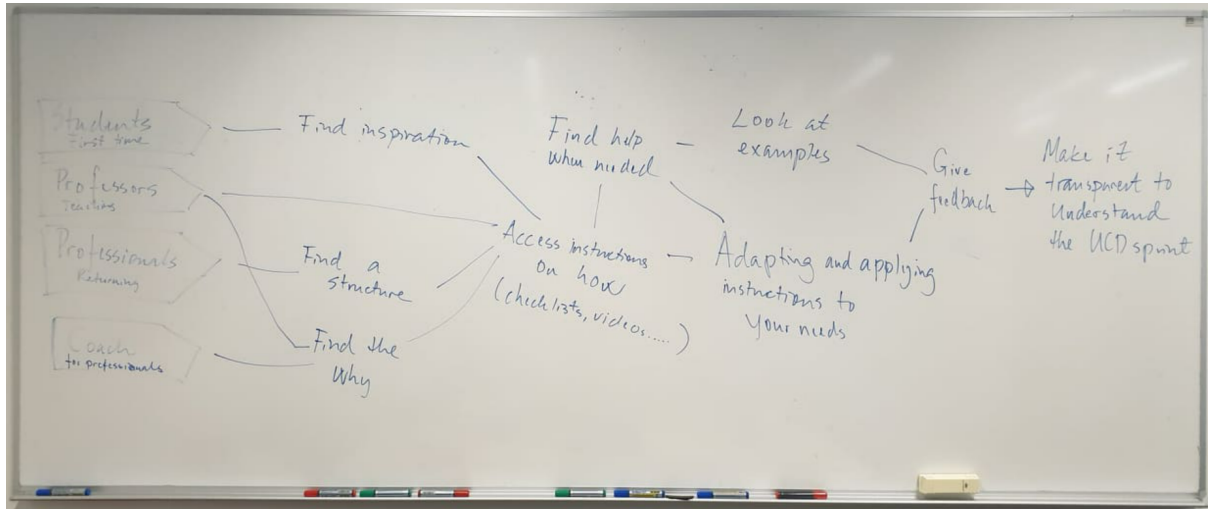 Students
First time
Professors
Teaching
Professionals
Returning
Coach
for professionals
Find inspiration
Find a
structure
Find the
Why
Access instructions
on how
(checklists, videos.....)
Find help
when needed
Look at
examples
Adapting and applying
instructions to
your needs
Give
feedback
Make it
transparent to
Understand
the UCD sprint